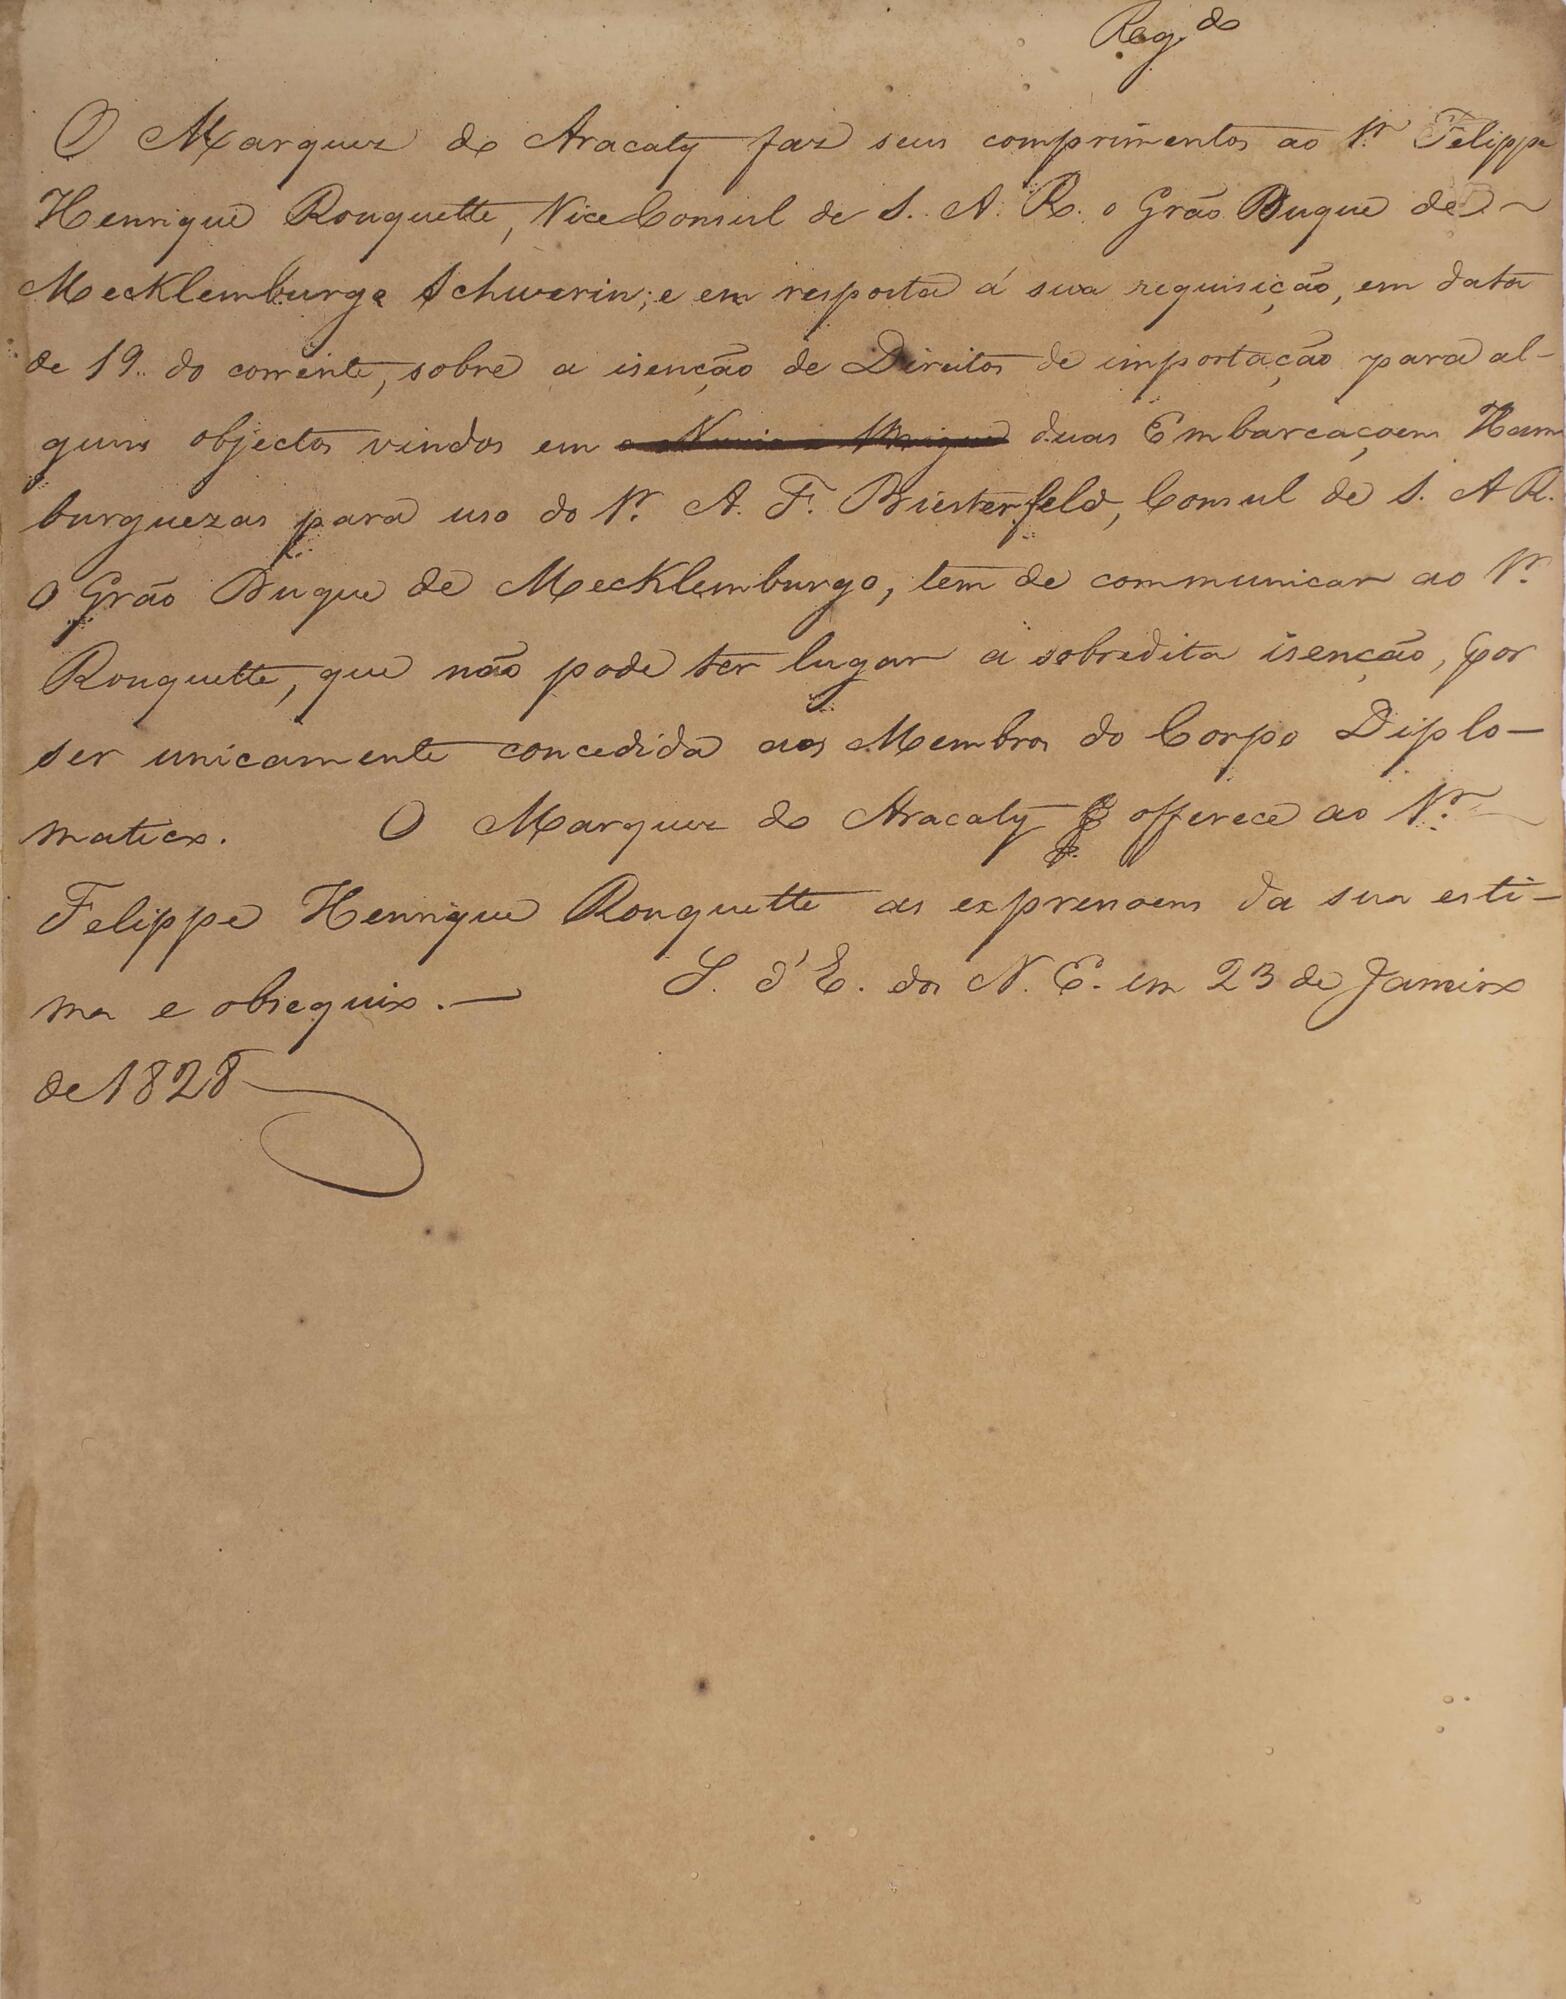 Reg.do
O Marquez do Aracaty faz seus comprimentos ao Sr. Felippe
Henrique Rouquette, Vice Consul de S. A. R. o Grão Duque de
Mecklemburgo Schwerin; e em resposta á sua requisição, em data
de 19 do corrente, sobre a isenção de Direitos de importação para al-
guns objectos vindos em duas Embarcaçoens Ham
burguezas para uso do Sr. A. F. Biesterfeld, Consul de S. A R.
o Grão Duque de Mecklemburgo, tem de communicar ao Sr.
Rouquette, que não pode ter lugar a sobredita isenção, por
ser unicamente concedida aos Membros do Corpo Diplo-
matico. O Marquez do Aracaty offerece ao Sr.
Felippe Henrique Rouquette as expressoens da sua esti-
ma e obsequio. — S. d'E. dos N. E. em 23 de Janeiro
de 1828